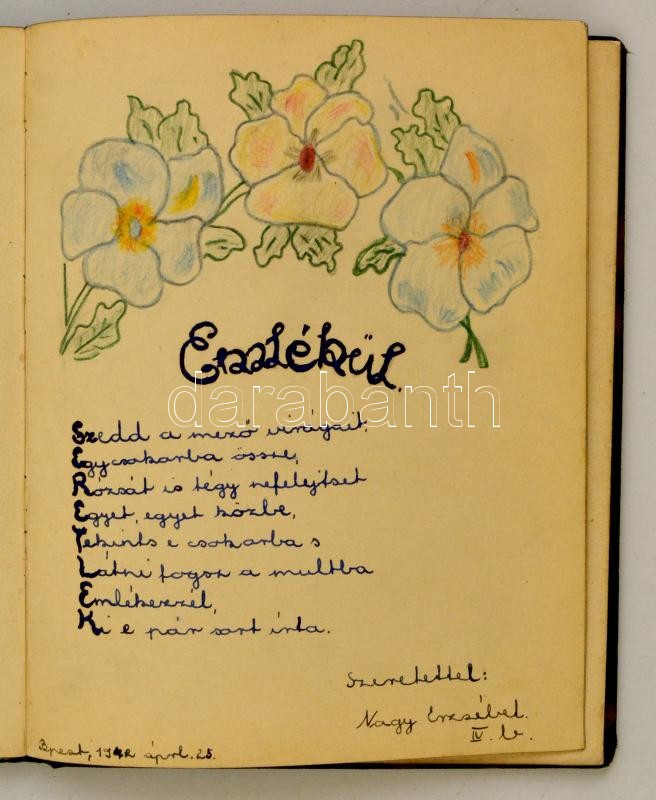 Emlékül.
darabanth
Szedd a mező virágait,
Egy csokorba össze,
Rózsát is tégy nefelejtset
Egyet, egyet közbe,
Tekints e csokorba s
Látni fogsz a multba
Emlékezzél,
Ki e pár sort írta.
Szeretettel:
Nagy Erzsébet.
IV. b.
Bpest, 1942 ápril. 25.